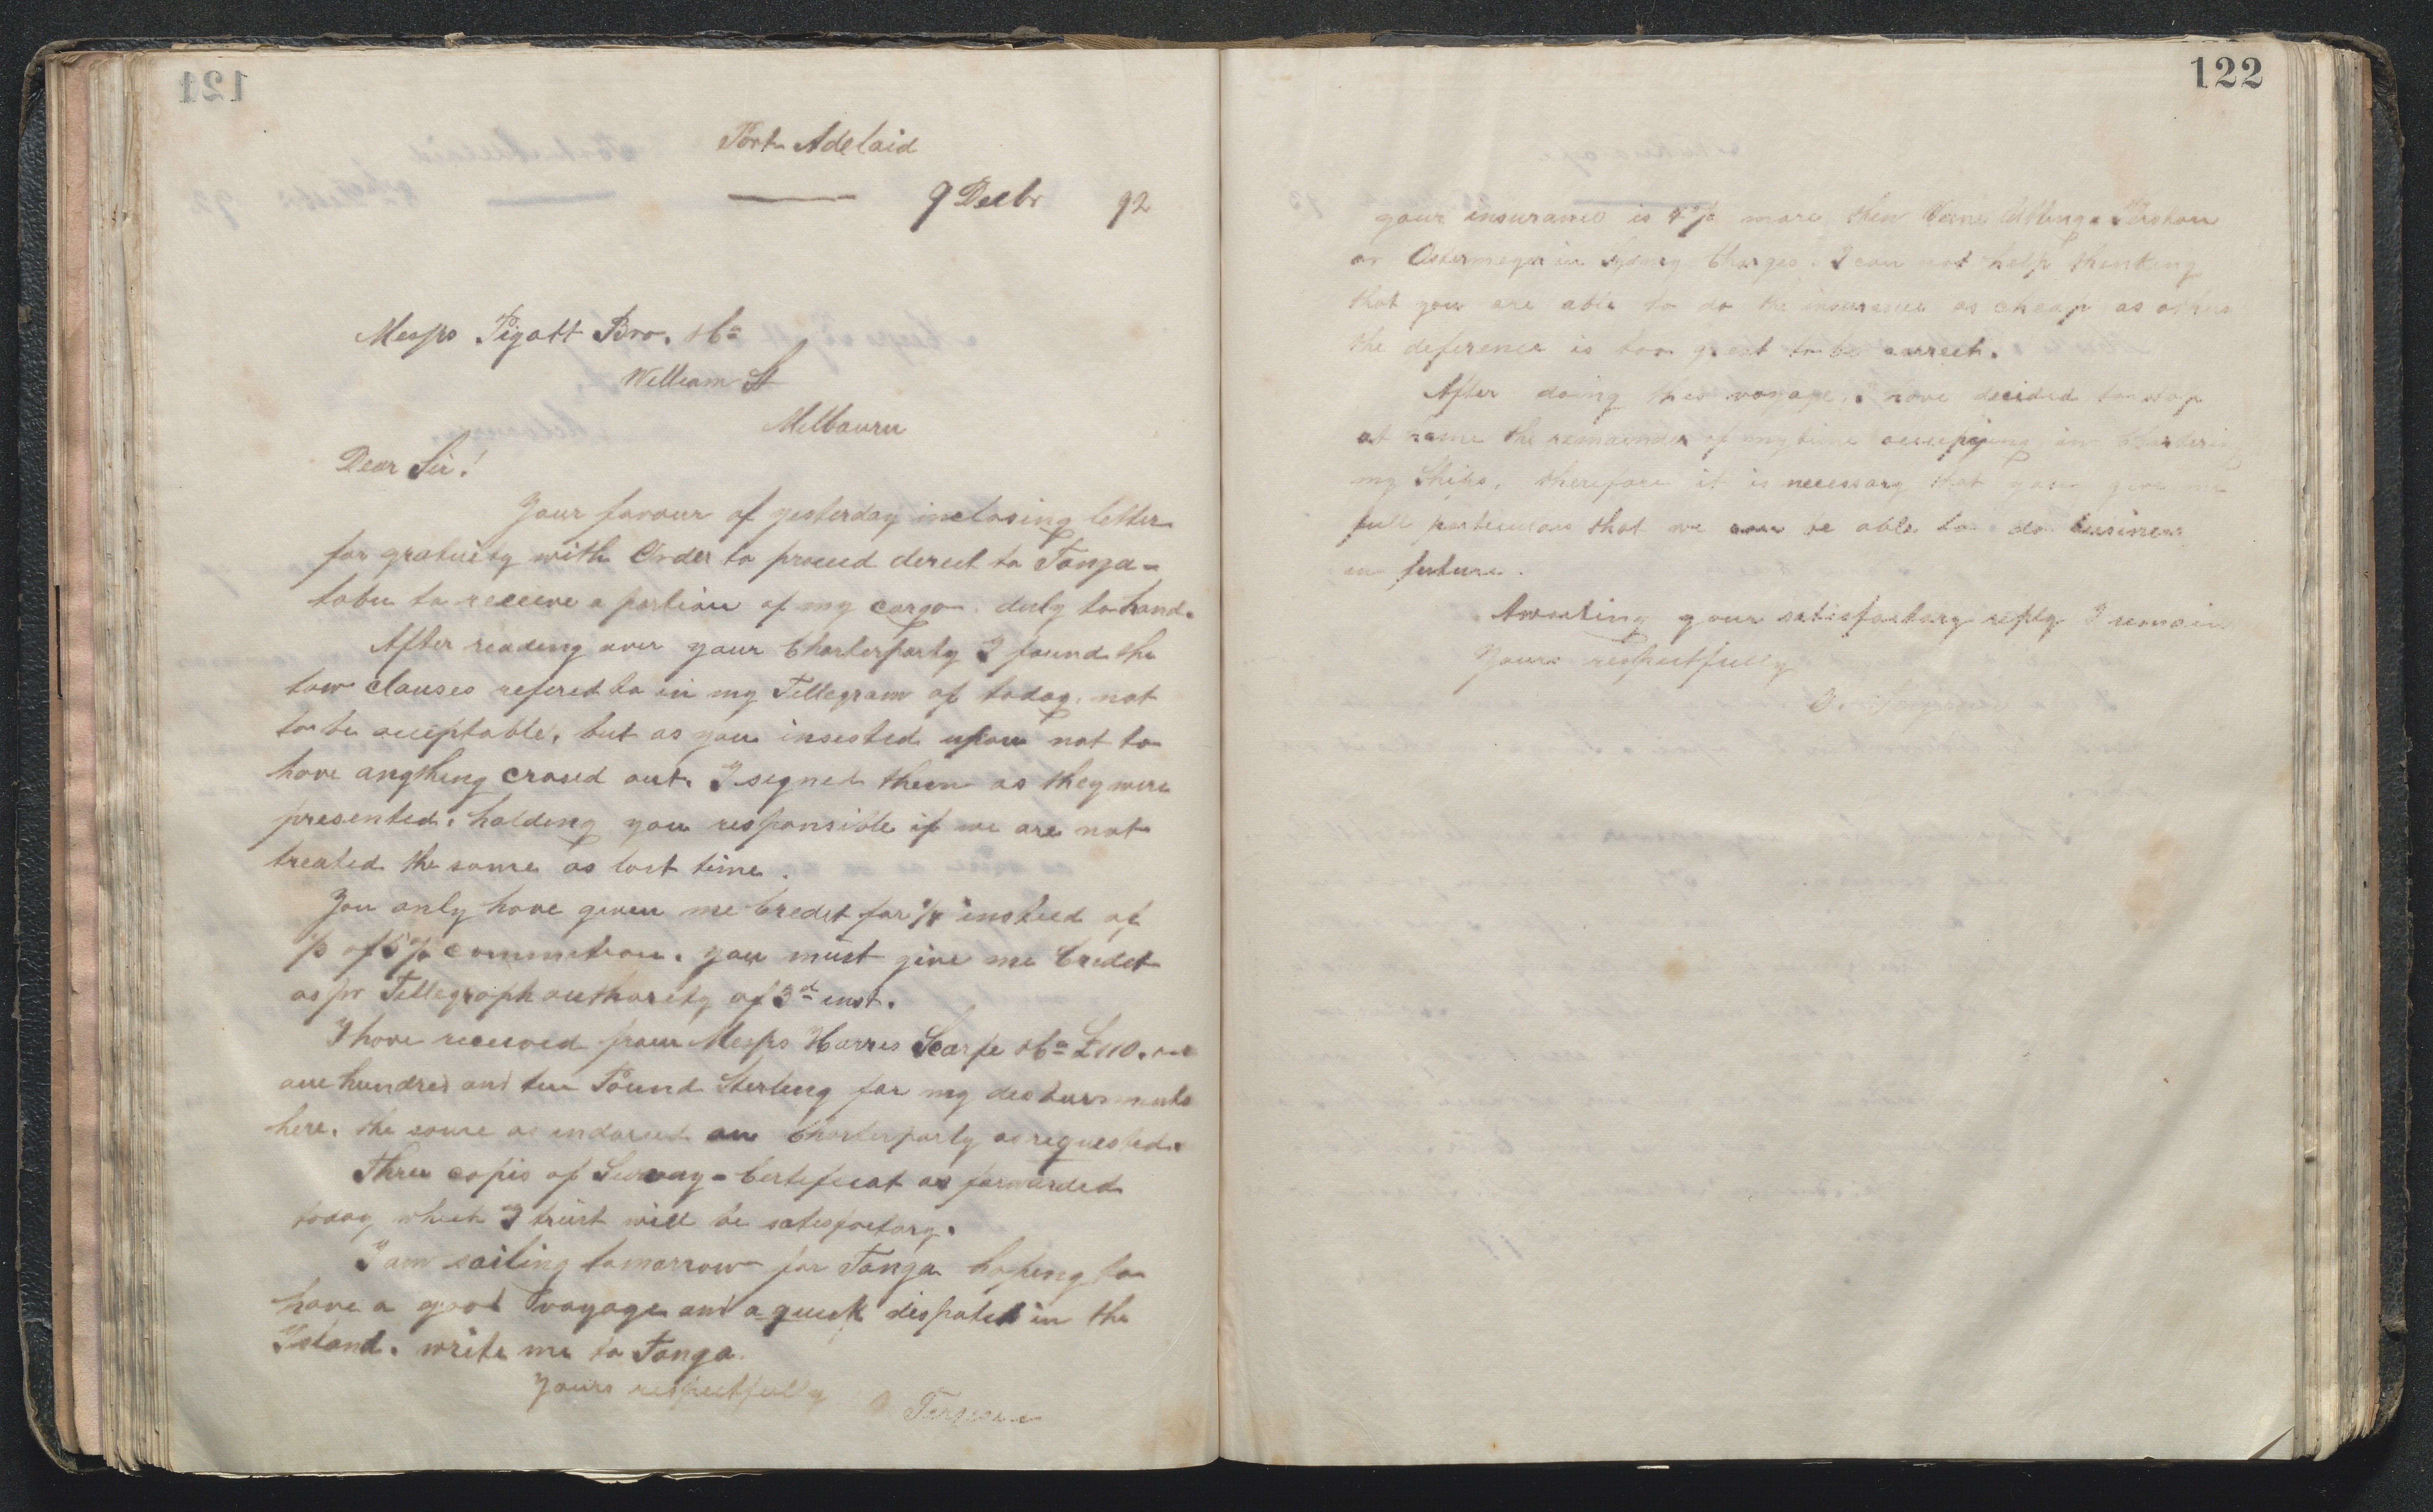 121
Port Adelaid
9 Decbr 92
Messrs Pigott Bro. & Co
William St
Melbourn
Dear Sir!
Your favour of yesterday inclosing letter
for gratuity with Order to proceed derect to Tonga-
tabu to receive a portion of my cargo. duly to hand.
After reading over your Charterparty I found the
tow clauses refered to in my Tellegram of today. not
to be acceptable, but as you insested upon not to
have angthing crosed out. I signed them as they were
presented. holding you responsible if we are not
treated the same as last time.
You only have given me Credit for insteed of
of 5% you must give me Credet
as pr Tellegraph authorety of 3d inst.
I have receeved from Messrs Harres Scarfe & Co £110.
one hundred and ten Pound Sterleng for my desbursments
here. the same as endorsed on Charterparty as requested.
Three copis of Survay-Certeficat as forwarded
today which I trust will be satesfactory.
I am sailing tomorrow for Tonga hopeng to
have a good voyage and a queck dispatch in the
Island. write me to Tonga.
Yours respectfully
122
your insurance is more then
or Ostermeyer in Sydney Charges. I can not help thinking
that you are able to do the insurance as cheap as others
the deference is too great to be correct.
After doing thes voyage. I have decided to stop
at home the remainder of my time in Chartering
my Ships, therefore it is necessary that you give me
full particulars that we can be able to do business
in future.
Awaiting your satisfactory reply I remain
Yours respectfully